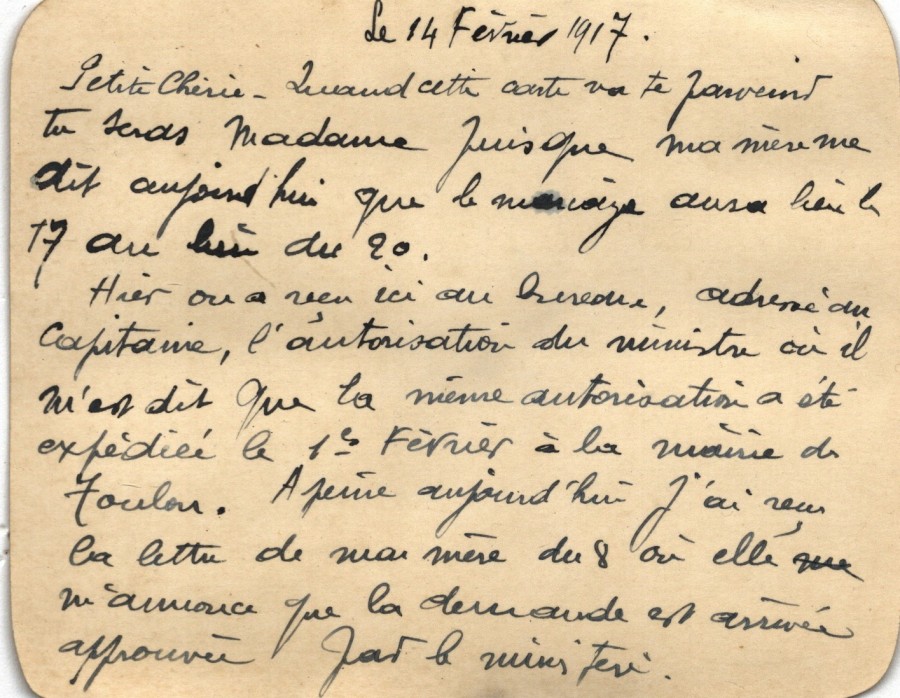 Le 14 Février 1917.
Petite Chérie - Quand cette carte va te parvenir
tu seras Madame puisque ma mère me
dit aujourd'hui que le mariage aura lieu le
17 au lieu du 20.
Hier on a reçu ici au bureau, adressé au
Capitaine, l'autorisation du ministre où il
m'est dit que la même autorisation a été
expédiée le 1er Février à la mairie de
Toulon. A peine aujourd'hui j'ai reçu
la lettre de ma mère du 8 où elle me
m'annonce que la demande est arrivée
approuvée par le ministère.